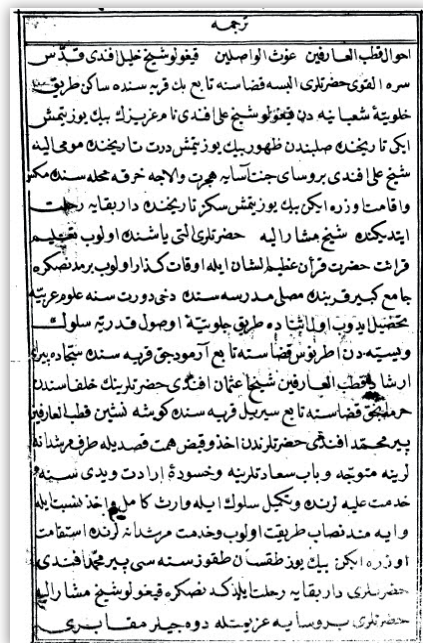 ترجمه
احوال قطب العارفين غوث الواصلين قيغولو شيخ خليل افندى قدس
سره القوى حضرتلرى البسه قضاسنه تابع بك قريه سنده ساكن طريق
خلوتيهٔ شعبانيه دن قيغولو شيخ على افندى نام عزيزك بيك يوز يتمش
ايكى تاريخنده صلبندن ظهور بيك يوز يتمش درت تاريخنده مومى اليه
شيخ على افندى بروساى جنت آسايه هجرت والاجه خرقه محله سنده مكث
واقامت اوزره ايكن بيك يوز يتمش سكز تاريخنده دار بقايه رحلت
ايتدكده شيخ مشار اليه حضرتلرى التى ياشنده اولوب تعليم
قرائت حضرت قرآن عظيم الشان ايله اوقات كذار اولوب برمدتصكره
جامع كبير قربنده مصلى مدرسه سنده دخى دورت سنه علوم عربيه
تحصيل ايدوب اول اثناده طريق جلوتيهٔ اوصول قدريه سلوك
ويسيته دن اطرنوس قضاسنه تابع آرمودجق قريه سنده سجاده پيراى
ارشاد قطب العارفين شيخ عثمان افندى حضرتلرينك خلفاسندن
حرمنجق قضاسنه تابع سيربيل قريه سنده كوشه نشين قطب العارفين
پير محمد افندى حضرتلرندن اخذ وفيض همت قصديله طرف مرشدانه
لرينه متوجه وباب سعادتلرينه وخسودهٔ ارادت ويدى سنه
خدمت عليه لرنده وتكميل سلوك ايله وارث كامل واخذ نسبت ايله
وايه مند نصاب طريقت اولوب وخدمت مرشدانه لرنده استقامت
اوزره ايكن بيك يوز طقسان طقوز سنه سى پير محمد افندى
حضرتلرى دار بقايه رحلت ايلدكدنصكره قيغولو شيخ مشار اليه
حضرتلرى بروسايه عزيمتله دوه جيلر مقابرى